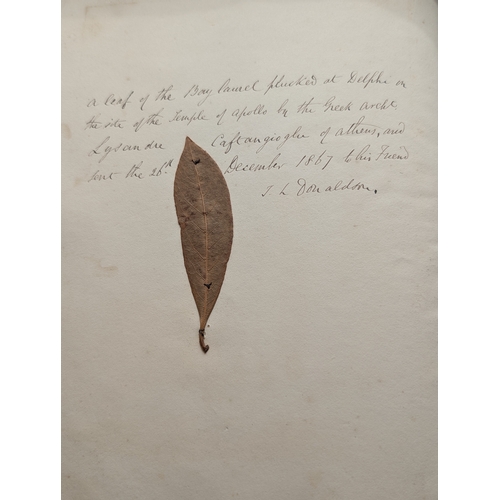 A leaf of the Bay laurel plucked at Delphi on
the site of the Temple of Apollo by the Greek archt
Lysandre Caftangioglu of Athens, and
sent the 26th December 1867 to his Friend
T L Donaldson.